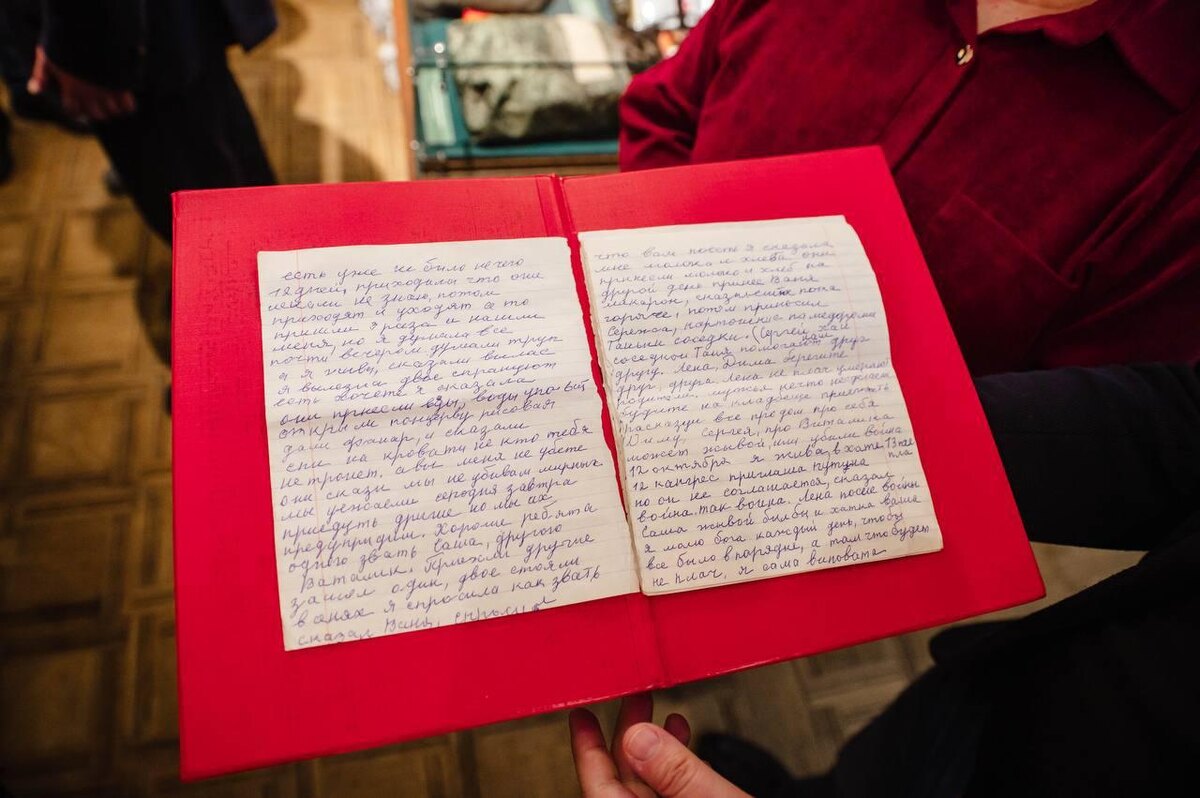 есть уже не было нечего
12 дней, приходили что они
не знаю, потом
приходят и уходят а то
пришли 3 раза и нашли
меня, но я думала все
почти вечером думали труп
а я жива, сказали вылас
я вылезла двое спрашуют
есть хочете я сказала
они принесли еды, воды упо
открыли консерву рисовай
дали фонар, и сказали
спи на кровати не кто тебя
не тронет, а вы меня не убете
они скази мы не убивам мирных
мы уежаем сегодня завтра
приедуть другие но мы их
предупридим. Хороше ребята
одного звать Саша, другого
Виталик. Приехали другие
зашел один, двое стояли
в окнях я спросила как звать
сказал Ваня,
что вам я сказала
мне молока и хлеба они
принесли молоко и хлеб на
другой день принес Ваня
макарон, сказал пока
горячее, потом приносил
Сережа,
Таньки соседки. (Сергей
соседкой Таня помогают друг
другу. Лена, Дима берегите
друг, друга. Лена не плач умерают
родители, мужья нечто не
будите на кладбище приежать
расказуй все про дом про себя
Диму, Сергея, про Виталика
может живой или убили война
12 октября я жива, в хате, 13
12 кангрес приглаша Путина
но он не соглашается, сказал
война так война. Лена после войны
Саша живой былбы и хатка ваша
я молю бога каждый день, чтобы
все было в порядке, а там что будет
не плач, я сама виновата